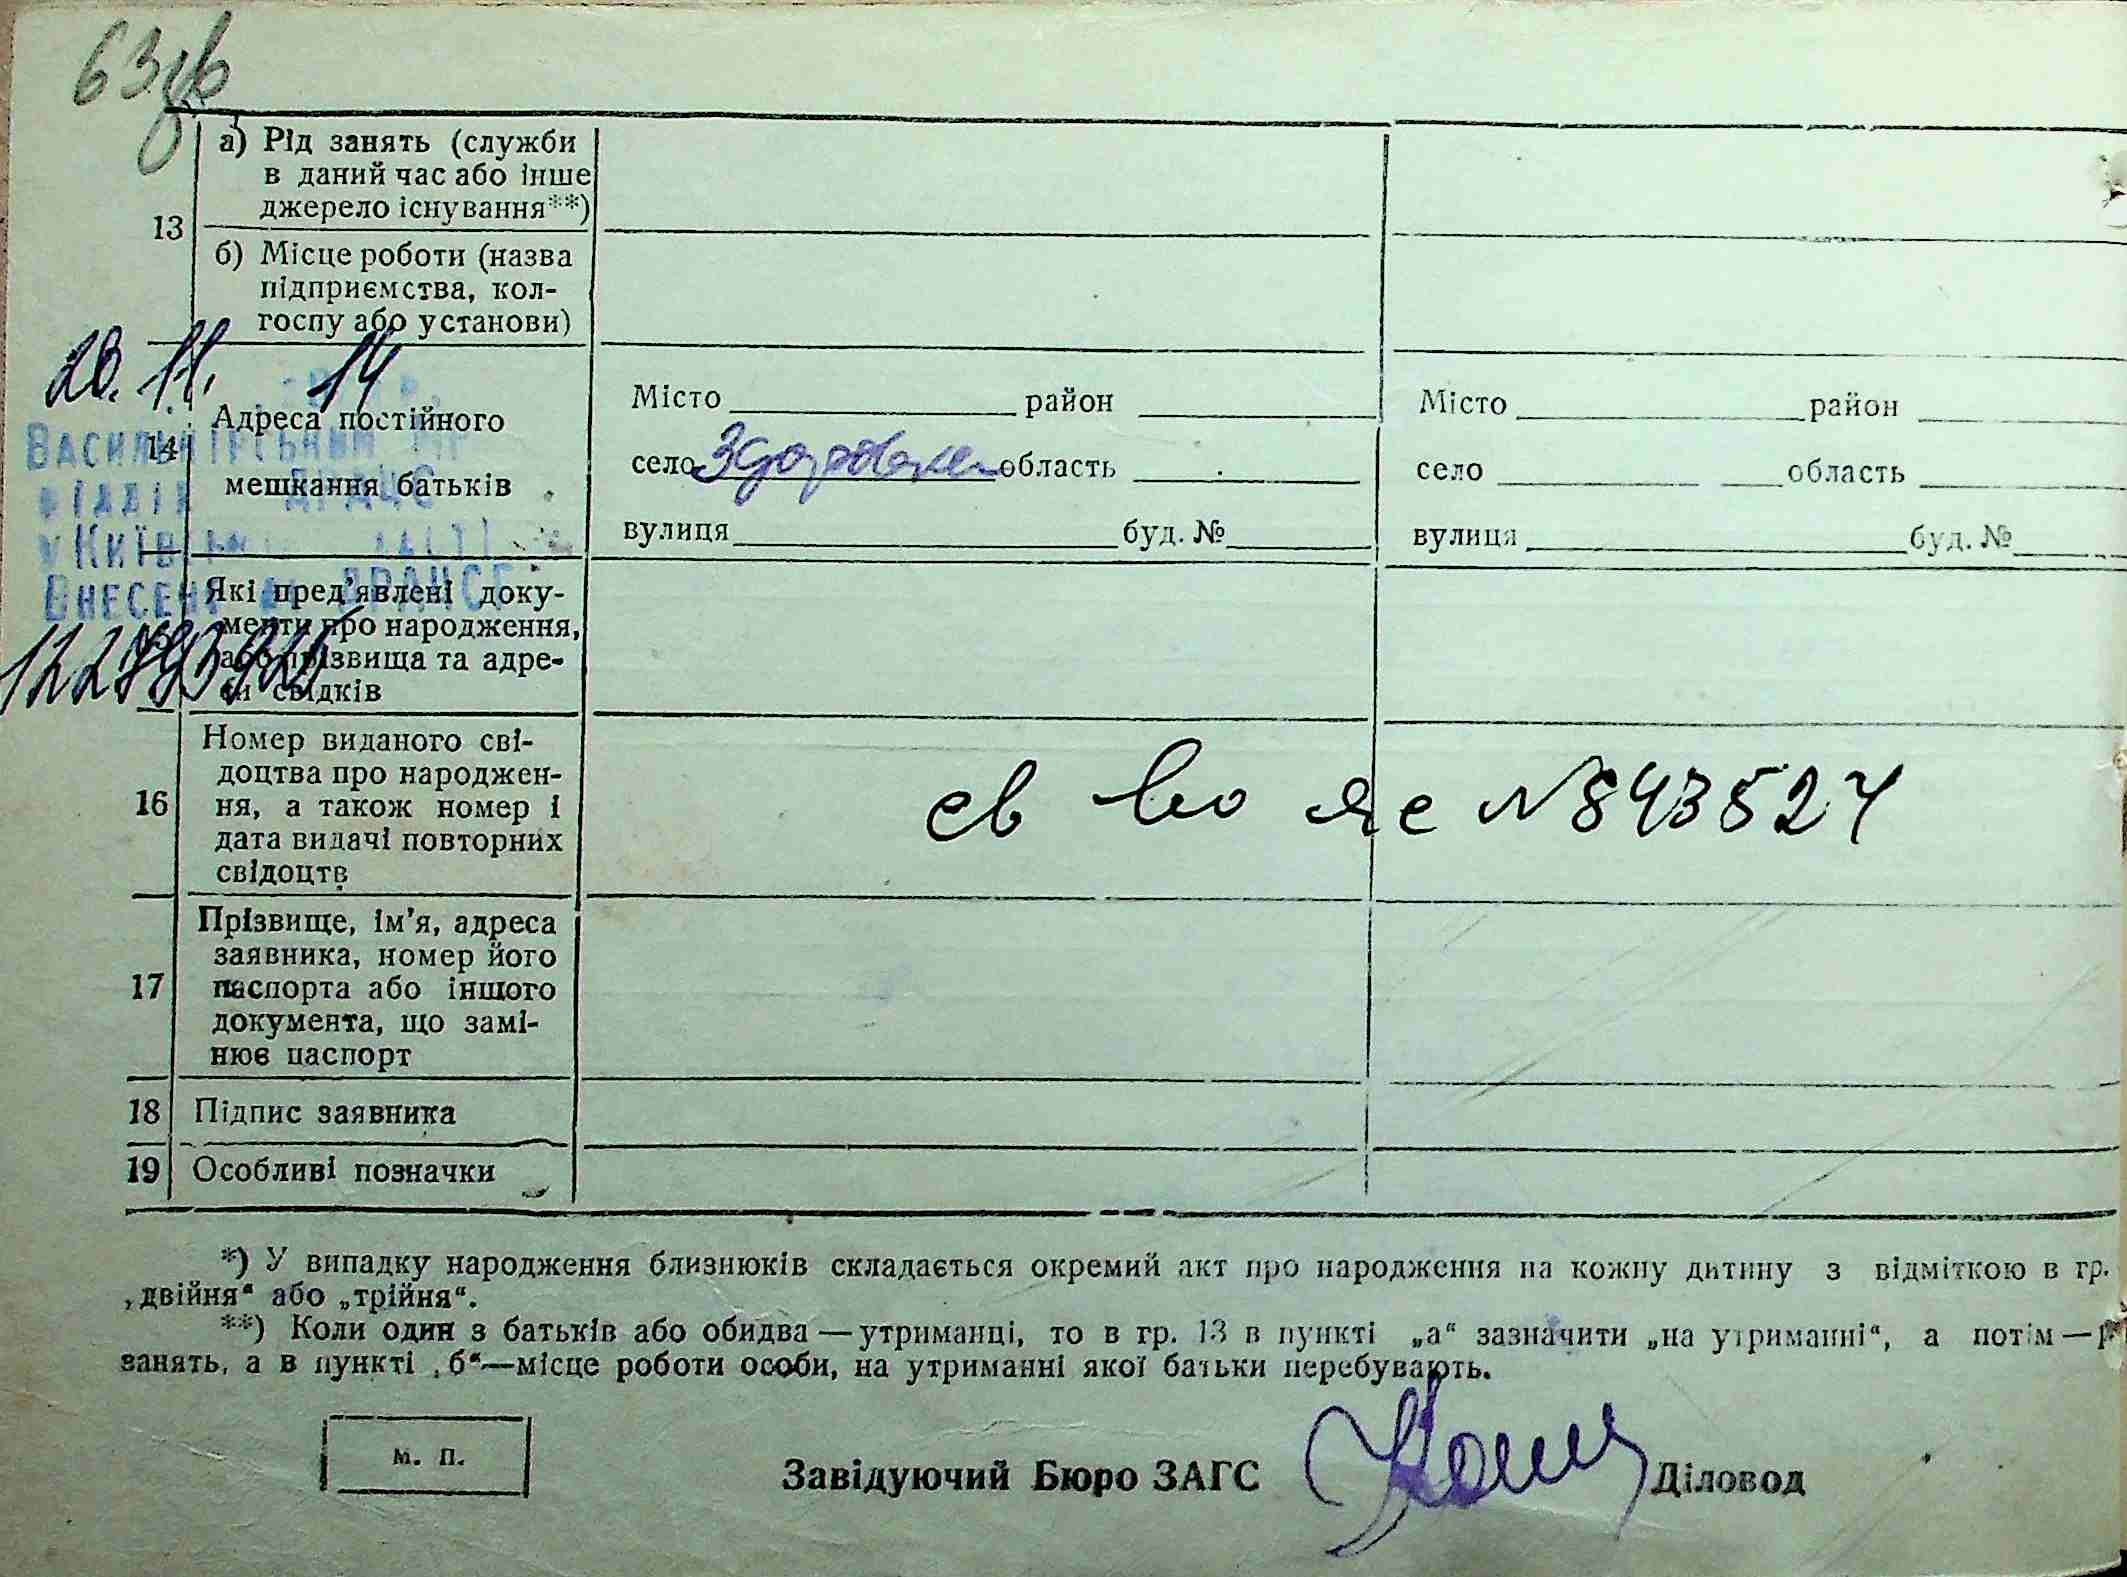 63 зв
13
а) Рід занять (служби
в даний час або інше
джерело існування**)
б) Місце роботи (назва
підприємства, кол-
госпу або установи)
20. 11. 14
Васильківський МР
відділ ДРАЦС
у Київській області
Внесено до ДРАЦСГ
14
Адреса постійного
мешкання батьків
Місто район
село Здоровка область
вулиця буд. №
Місто район
село область
вулиця буд. №
Які пред'явлені доку-
менти про народження,
або прізвища та адре-
си свідків
16
Номер виданого сві-
доцтва про народжен-
ня, а також номер і
дата видачі повторних
свідоцтв
св №843524
17
Прізвище, ім'я, адреса
заявника, номер його
паспорта або іншого
документа, що замі-
нює паспорт
18 Підпис заявника
19 Особливі позначки
*) У випадку народження близнюків складається окремий акт про народження на кожну дитину з відміткою в гр.
„двійня“ або „трійня“.
**) Коли один з батьків або обидва — утриманці, то в гр. 13 в пункті „а“ зазначити „на утриманні“, а потім —
занять, а в пункті „б“—місце роботи особи, на утриманні якої батьки перебувають.
м. п.
Завідуючий Бюро ЗАГС Діловод